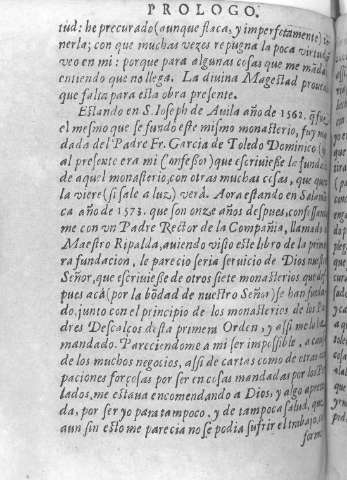 PROLOGO.
tud: he procurado (aunque flaca, y imperfetamente) te
nerla; con que muchas vezes repugna la poca virtud q̃
veo en mi: porque para algunas cosas que me mãdã
entiendo que no llega. La divina Magestad provea
que falta para esta obra presente.
Estando en S. Ioseph de Auila año de 1562. q̃ fue
el mesmo que se fundo este mismo monasterio, fuy mã
dada del Padre Fr. Garcia de Toledo Dominico (q̃
al presente era mi Confessor) que escriuiesse la fundaciõ
de aquel monasterio, con otras muchas cosas, que quien
la viere (si sale a luz) verà. Aora estando en Salamã
ca año de 1573. que son onze años despues, confessando
me con vn Padre Rector de la Compañia, llamado
Maestro Ripalda, auiendo visto este libro de la prime
ra fundacion, le parecio seria seruicio de Dios nuestro
Señor, que escriuiesse de otros siete monasterios que des
pues acà (por la bõdad de nuestro Señor) se han funda
do, junto con el principio de los monasterios de los Pa
dres Descalços desta primera Orden, y assi me lo ha
mandado. Pareciendome a mi ser impossible, a causa
de los muchos negocios, assi de cartas como de otras ocu
paciones forçosas por ser en cosas mandadas por los Pre
lados, me estaua encomendando a Dios, y algo apreta
da, por ser yo para tampoco, y de tampoca salud, que
aun sin esto me parecia no se podia sufrir el trabajo, con
forme